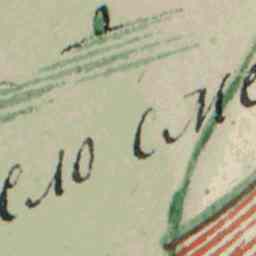 ело сме